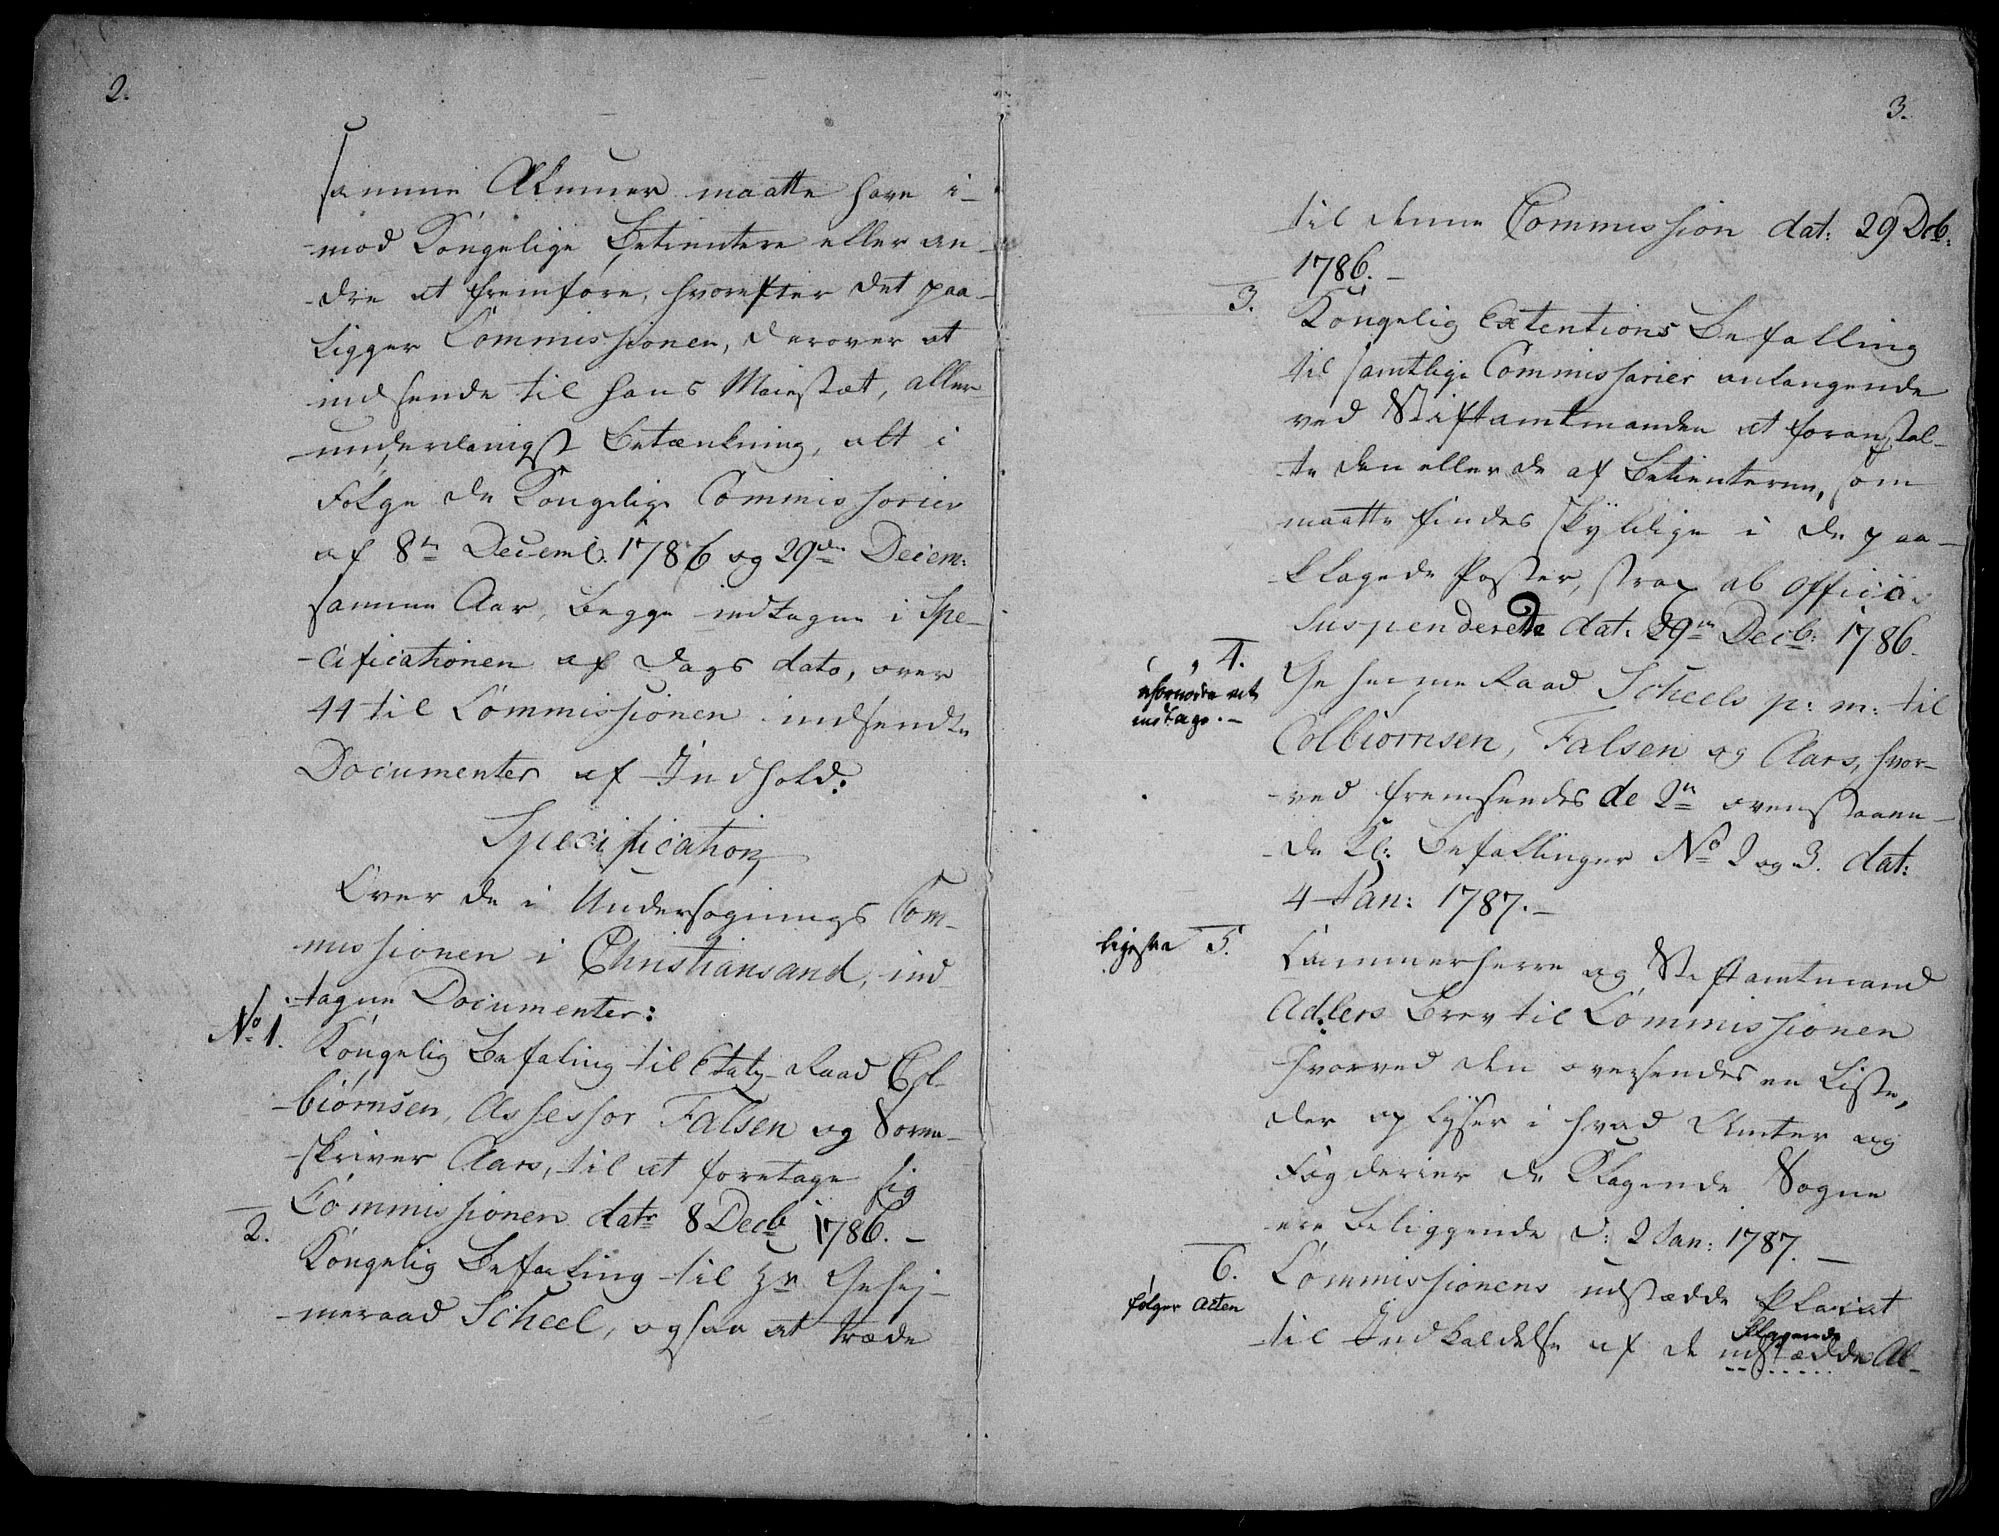 2.
samme Almuer maatte have i-
mod Kongelige Betientere eller an-
dre at fremføre, hvorefter det paa-
ligger Commissionen, derover at
indsende til Hans Maiestæt, aller-
underdanigst Betænkning, alt i
Følge de Kongelige Commissorier
af 8de Decemb. 1786 og 29de Decem:
samme Aar, begge indtagne i Spe-
cificationen af Dags dato, over
44 til Commissionen indsendte
Documenter af Indhold:
Specification,
Over de i Undersøgnings Com-
missionen i Christiansand, ind-
tagne Documenter:
No 1. Kongelig Befaling til Etats Raad Col-
biørnsen, Assessor Falsen og Soren-
skriver Aars, til at foretage sig
Commissionen datr 8 Decb 1786. -
2. Kongelig Befaling til Hr Gehej-
meraad Scheel, ogsaa at træde
3.
til denne Commission dat: 29 Decb:
1786. -
3. Kongelig Extentions Befalling
til samtlige Commissarier anlangende
ved Stiftamtmanden at foranstal-
te den eller de af Betienterne, som
maatte findes skyldige i de paa-
klagede Poster, strax ab officio
suspenderede dat. 29de Decb: 1786.
4. Geheime Raad Scheels p: m: til
ufornøden at
indtage. -
Colbiørnsen, Falsen og Aars, hvor-
ved fremsendes de 2de ovenstaaen-
de Kl: Befallinger No 2 og 3. dat:
4 Jan: 1787. -
ligesaa 5. Cammerherre og Stiftamtmand
Adlers Brev til Commissionen
hvorved den oversendes en Liste,
der oplyser i hvad Amter og
Fogderier de klagende Sogne
ere beliggende d: 2 Jan: 1787. -
6. Commissionens udstædde Placat
følger Acten
til Indkaldelse af de udstædde Al-
klagende